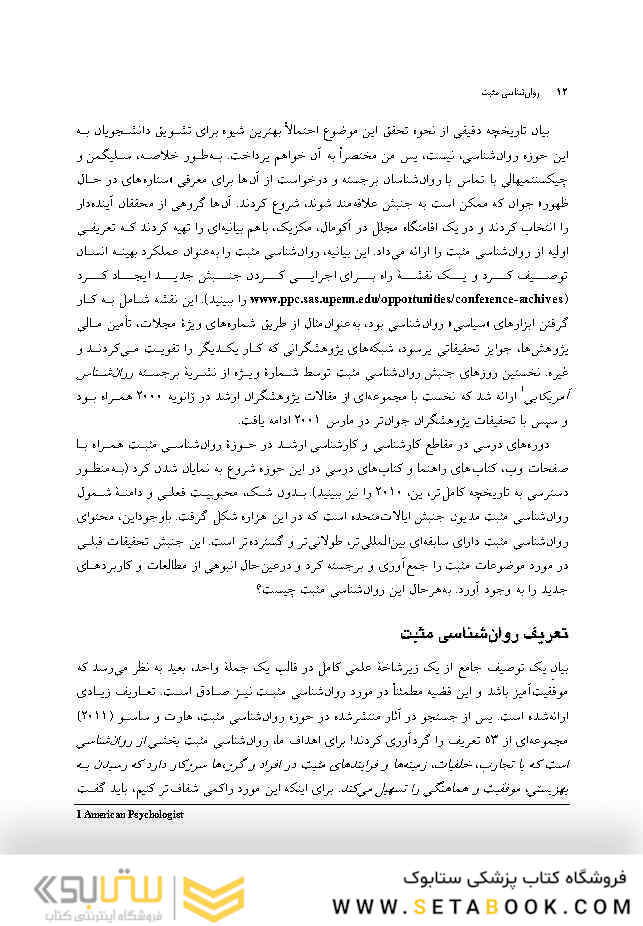 ۱۲ روان‌شناسی مثبت
بیان تاریخچه دقیقی از نحوه تحقق این موضوع احتمالاً بهترین شیوه برای تشویق دانشجویان به
این حوزه روان‌شناسی، نیست، پس من مختصراً به آن خواهم پرداخت. به‌طور خلاصه، سلیگمن و
چیکسنتمیهالی با تماس با روان‌شناسان برجسته و درخواست از آن‌ها برای معرفی «ستاره‌های در حال
ظهور» جوان که ممکن است به جنبش علاقه‌مند شوند، شروع کردند. آن‌ها گروهی از محققان آینده‌دار
را انتخاب کردند و در یک اقامتگاه مجلل در آکومال، مکزیک، باهم بیانیه‌ای را تهیه کردند که تعریفی
اولیه از روان‌شناسی مثبت را ارائه می‌داد. این بیانیه، روان‌شناسی مثبت را به‌عنوان عملکرد بهینه انسان
توصیف کرد و یک نقشۀ راه برای اجرایی کردن جنبش جدید ایجاد کرد
(www.ppc.sas.upenn.edu/opportunities/conference-archives را ببینید). این نقشه شامل به کار
گرفتن ابزارهای «سیاسی» روان‌شناسی بود، به‌عنوان‌مثال از طریق شماره‌های ویژۀ مجلات، تأمین مالی
پژوهش‌ها، جوایز تحقیقاتی پرسود، شبکه‌های پژوهشگرانی که کار یکدیگر را تقویت می‌کردند و
غیره. نخستین روزهای جنبش روان‌شناسی مثبت توسط شمارۀ ویژه از نشریۀ برجسته روان‌شناس
آمریکایی1 ارائه شد که نخست با مجموعه‌ای از مقالات پژوهشگران ارشد در ژانویه ۲۰۰۰ همراه بود
و سپس با تحقیقات پژوهشگران جوان‌تر در مارس ۲۰۰۱ ادامه یافت.
دوره‌های درسی در مقاطع کارشناسی و کارشناسی ارشد در حوزۀ روان‌شناسی مثبت همراه با
صفحات وب، کتاب‌های راهنما و کتاب‌های درسی در این حوزه شروع به نمایان شدن کرد (به‌منظور
دسترسی به تاریخچه کامل‌تر، ین، ۲۰۱۰ را نیز ببینید). بدون شک، محبوبیت فعلی و دامنۀ شمول
روان‌شناسی مثبت مدیون جنبش ایالات‌متحده است که در این هزاره شکل گرفت. باوجوداین، محتوای
روان‌شناسی مثبت دارای سابقه‌ای بین‌المللی‌تر، طولانی‌تر و گسترده‌تر است. این جنبش تحقیقات قبلی
در مورد موضوعات مثبت را جمع‌آوری و برجسته کرد و درعین‌حال انبوهی از مطالعات و کاربردهای
جدید را به وجود آورد. به‌هرحال این روان‌شناسی مثبت چیست؟
تعریف روان‌شناسی مثبت
بیان یک توصیف جامع از یک زیرشاخۀ علمی کامل در قالب یک جملۀ واحد، بعید به نظر می‌رسد که
موفقیت‌آمیز باشد و این قضیه مطمئناً در مورد روان‌شناسی مثبت نیز صادق است. تعاریف زیادی
ارائه‌شده است. پس از جستجو در آثار منتشرشده در حوزه روان‌شناسی مثبت، هارت و ساسو (۲۰۱۱)
مجموعه‌ای از ۵۳ تعریف را گردآوری کردند! برای اهداف ما، روان‌شناسی مثبت بخشی از روان‌شناسی
است که با تجارب، خلقیات، زمینه‌ها و فرایندهای مثبت در افراد و گروه‌ها سروکار دارد که رسیدن به
بهزیستی، موفقیت و هماهنگی را تسهیل می‌کند. برای اینکه این مورد راکمی شفاف‌تر کنیم، باید گفت
1 American Psychologist
فروشگاه کتاب پزشکی ستابوک
WWW.SETABOOK.COM
ستابوک
فروشگاه اینترنتی کتاب